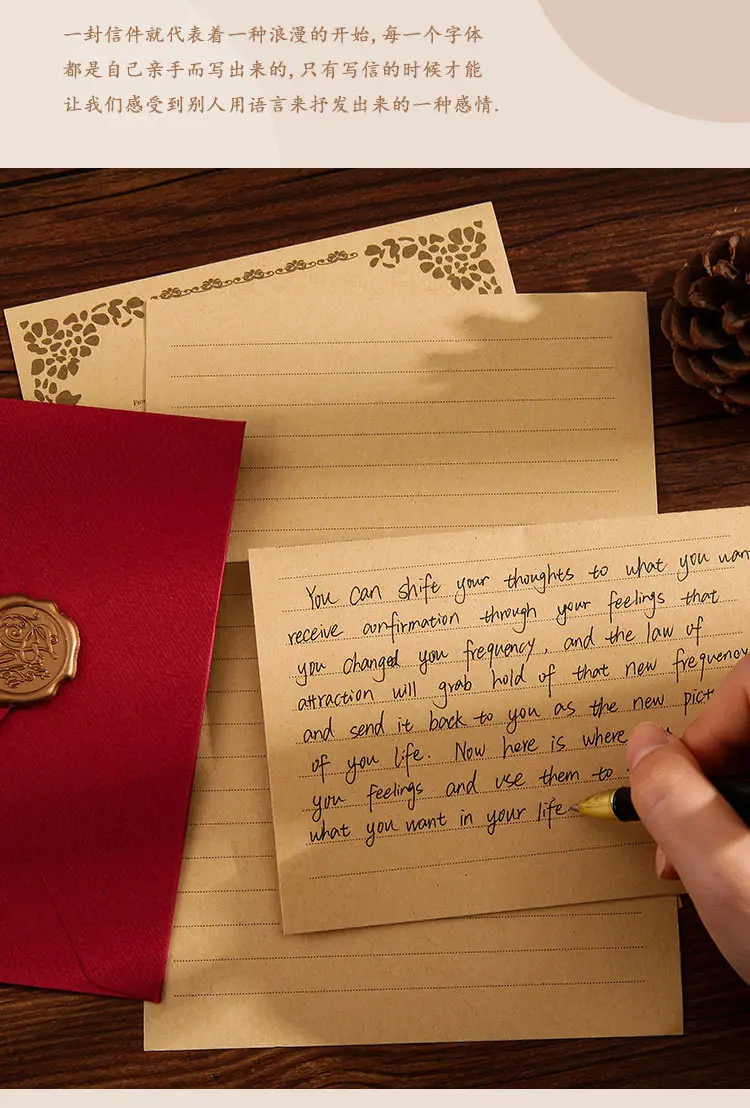 一封信件就代表着一种浪漫的开始,每一个字体
都是自己亲手而写出来的,只有写信的时候才能
让我们感受到别人用语言来抒发出来的一种感情.
You can shift your thoughts to what you wan
receive confirmation through your feelings that
you changed you frequency, and the law of
attraction will grab hold of that new frequency
and send it back to you as the new pict
of you life. Now here is where
you feelings and use them to
what you want in your life